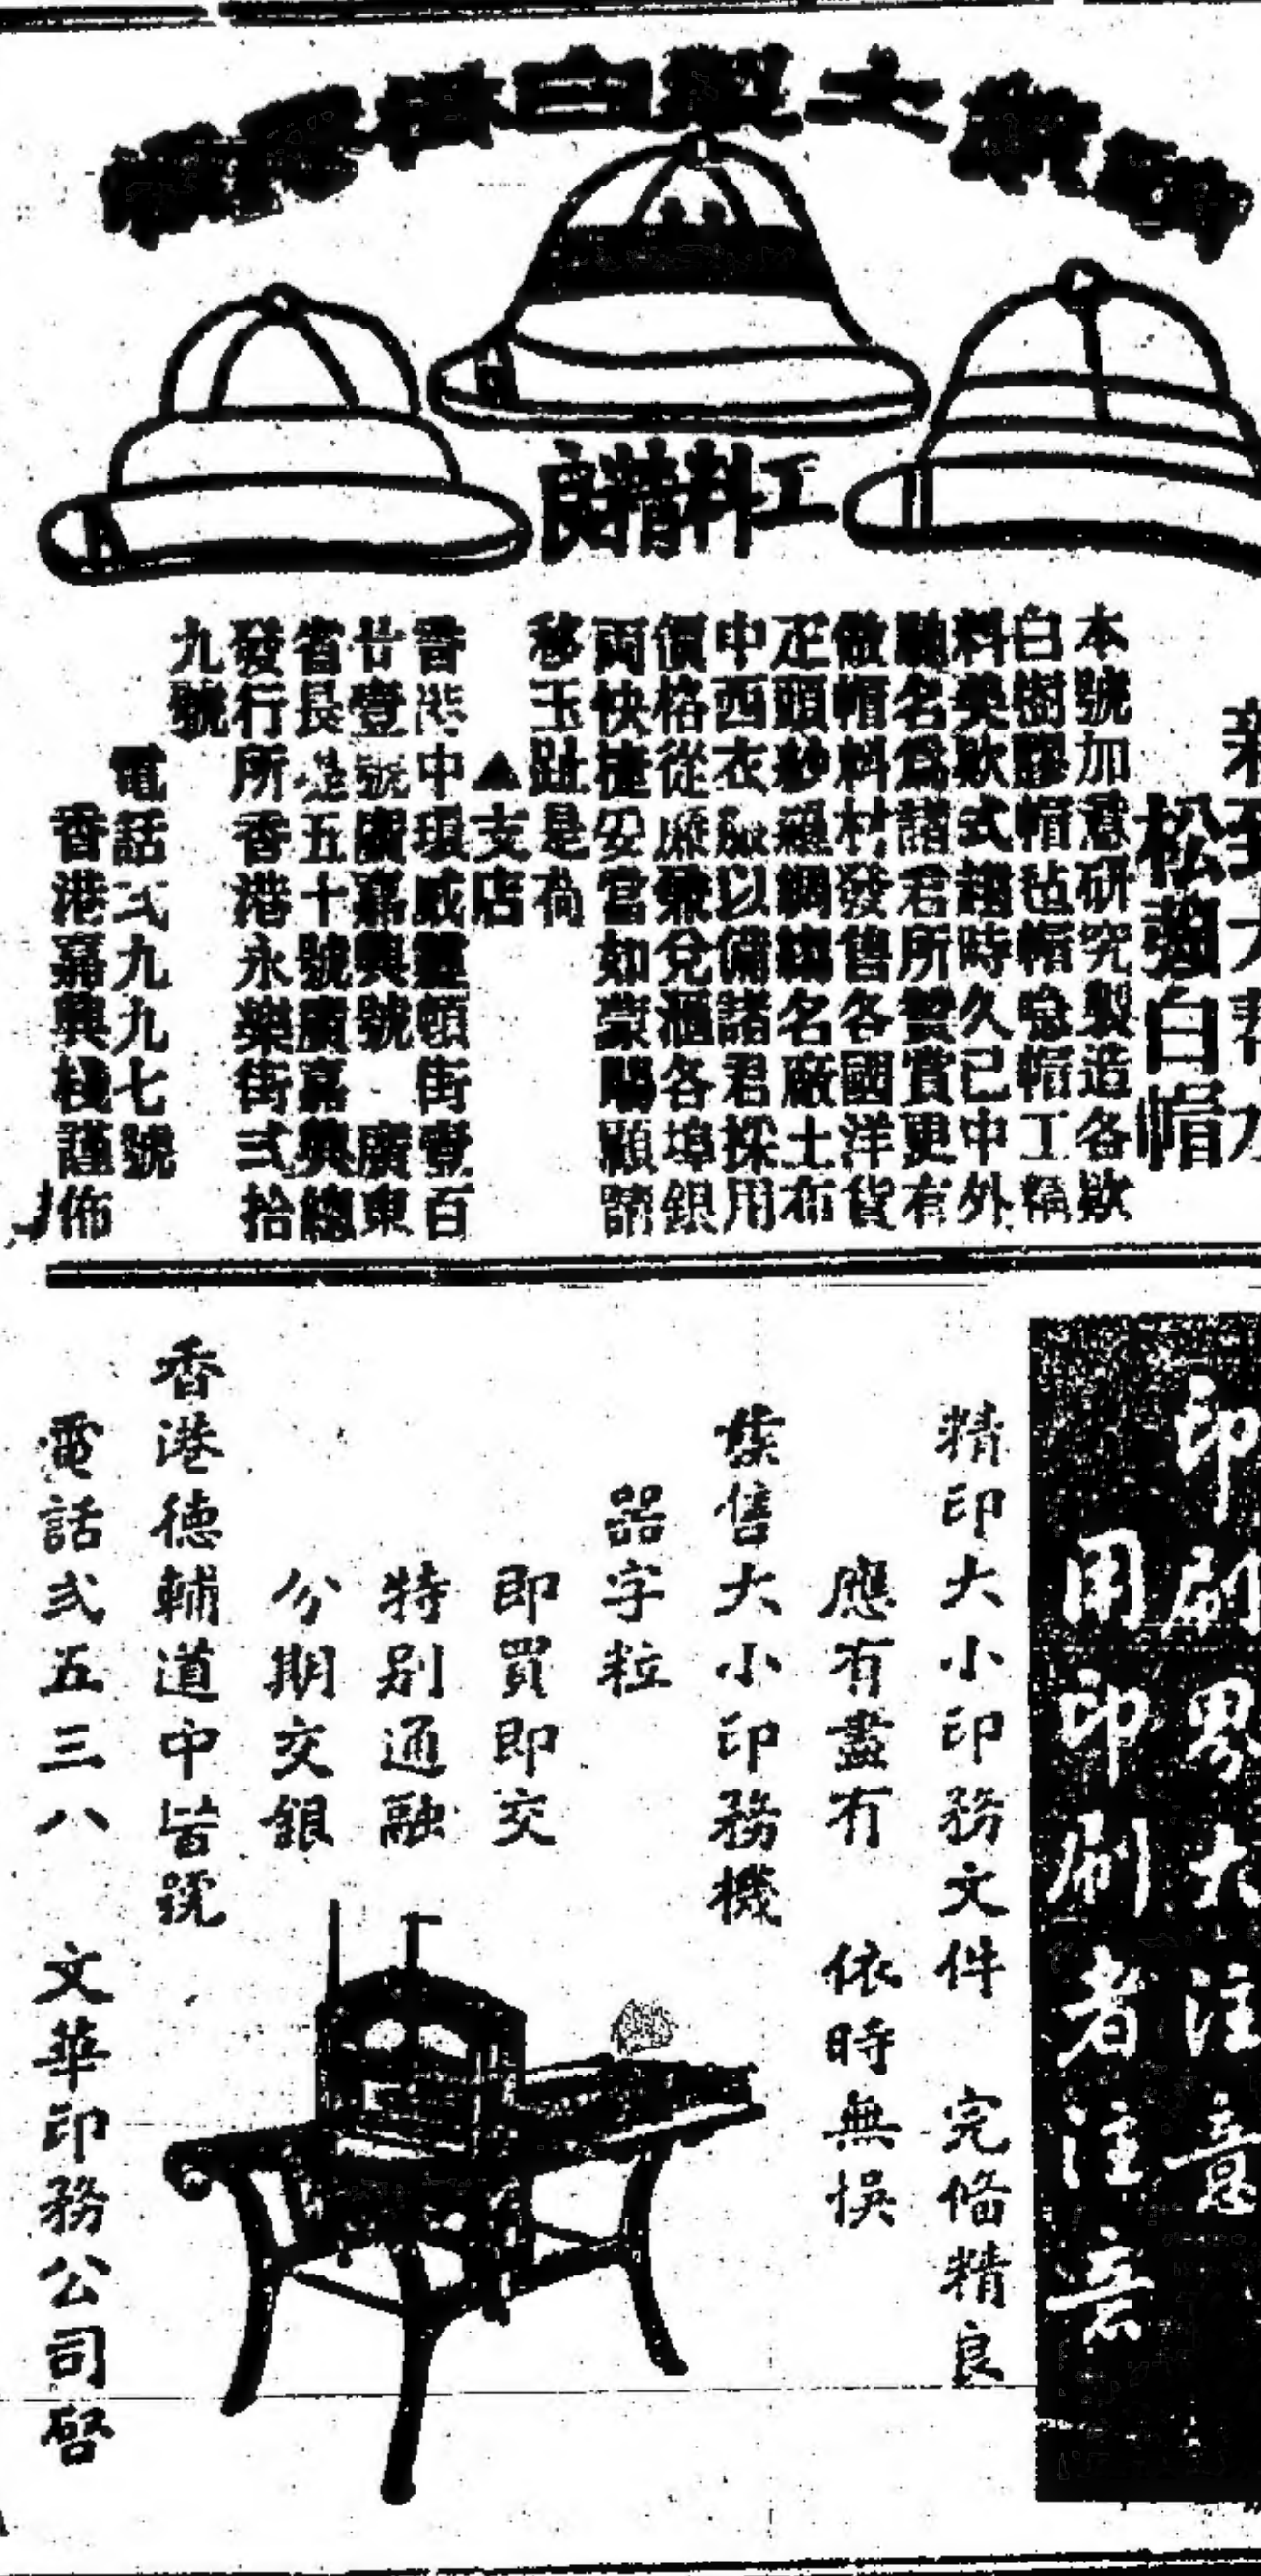 工料精良
松勁白帽
本號加意研究製造各欵
白樹膠帽毡帽唸帽工精
料美欵式趨時久已中外
馳名爲諸君所贊賞更有
做帽料材發售各國洋貨
疋頭紗羅綢 名廠土布
中西衣服以備諸君採用
價格從廉兼兌滙各埠銀
両快捷妥當如蒙賜顧請
移玉趾是荷
▲支店
香港中環威靈頓街壹百
廿壹號廣嘉興號 廣東
省長堤五十號廣嘉興總
發行所香港永樂街弍拾
九號
電話弍九九七號
香港嘉興棧謹佈
印刷界大注意
用印刷者注意
精印大小印務文件 完俻精良
應有盡有 依時無悞
發售大小印務機
器字粒
即買即交
特别通融
分期交銀
香港德輔道中皆號
電話弍五三八 文華印務公司啓